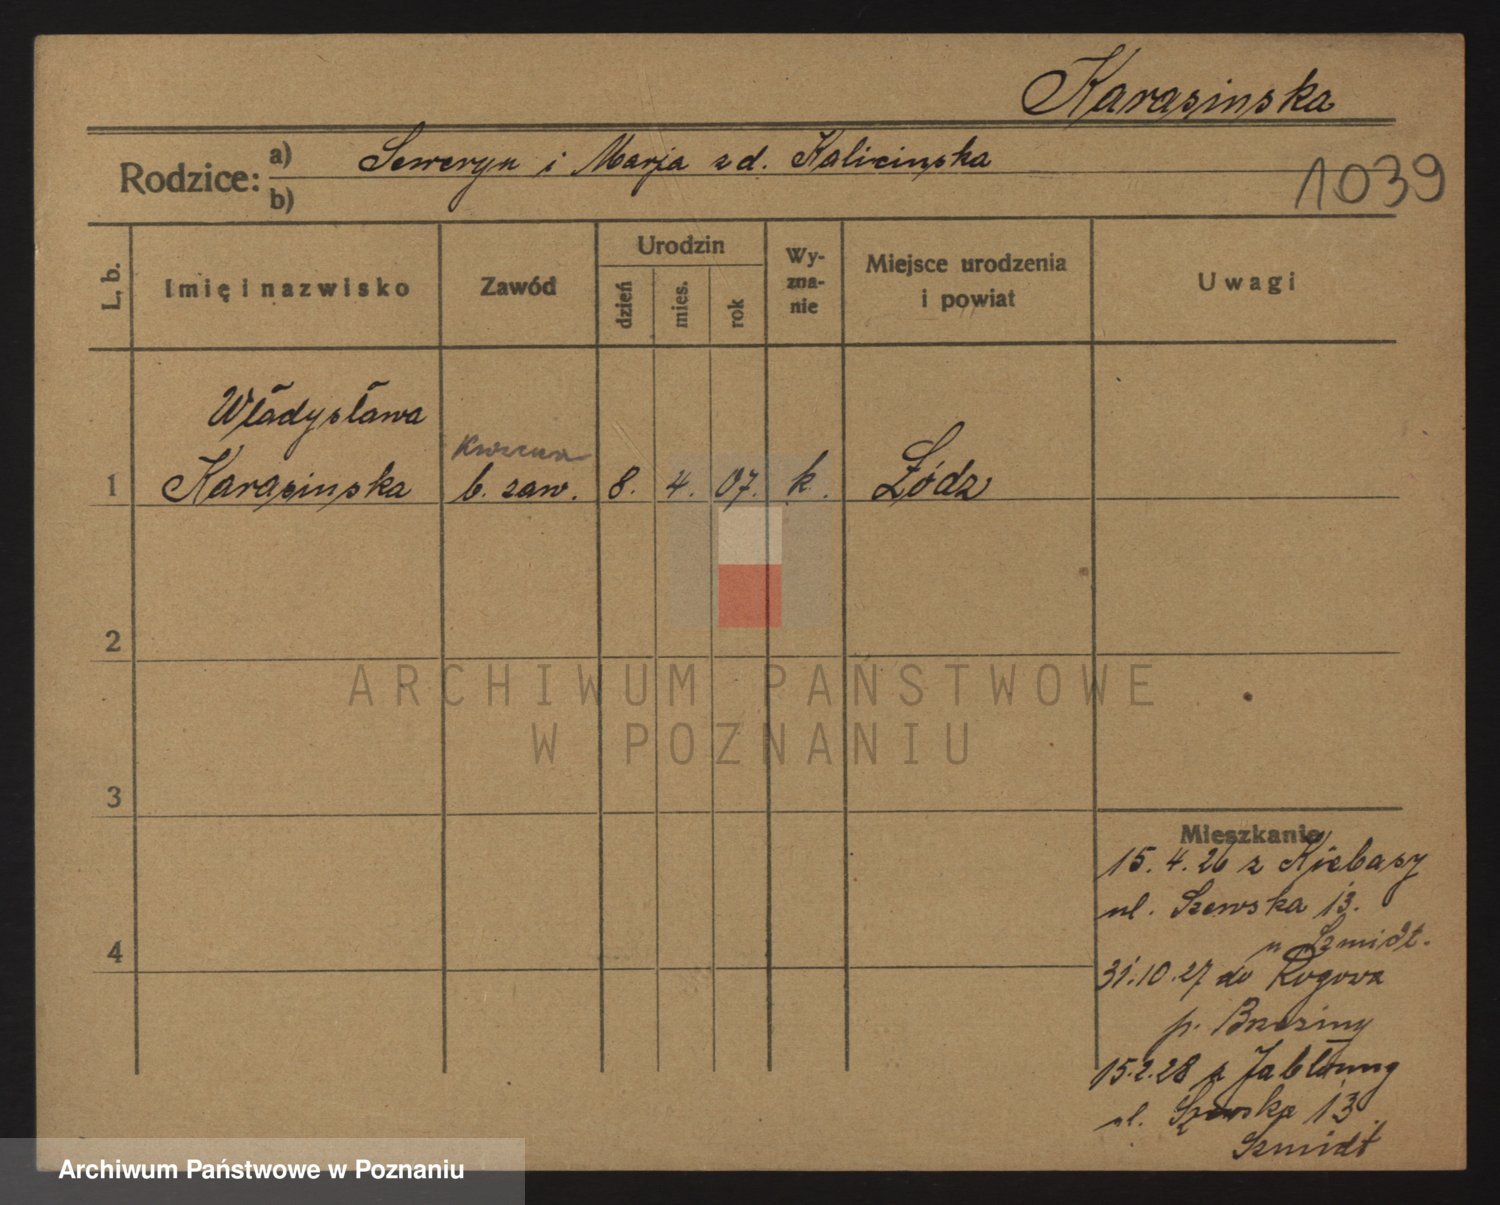 Karasinska
Rodzice: a) Seweryn i Marja zd. Kalicinska
b)
1039
L. b.
Imię i nazwisko
Zawód
Urodzin
dzień
mies.
rok
Wy-
zna-
nie
Miejsce urodzenia
i powiat
Uwagi
Władysława
1 Karasinska b. zaw. 8. 4. 07. k. Łódz
2
3
4
Mieszkanie
15. 4. 26 z Kiebasy
ul. Szewska 13.
Szmidt.
31.10.27 do Rogowa
p. Brzeziny
15.2.28 z Jabłonny
ul. Szewska 13
Szmidt
ARCHIWUM PAŃSTWOWE
W POZNANIU
Archiwum Państwowe w Poznaniu